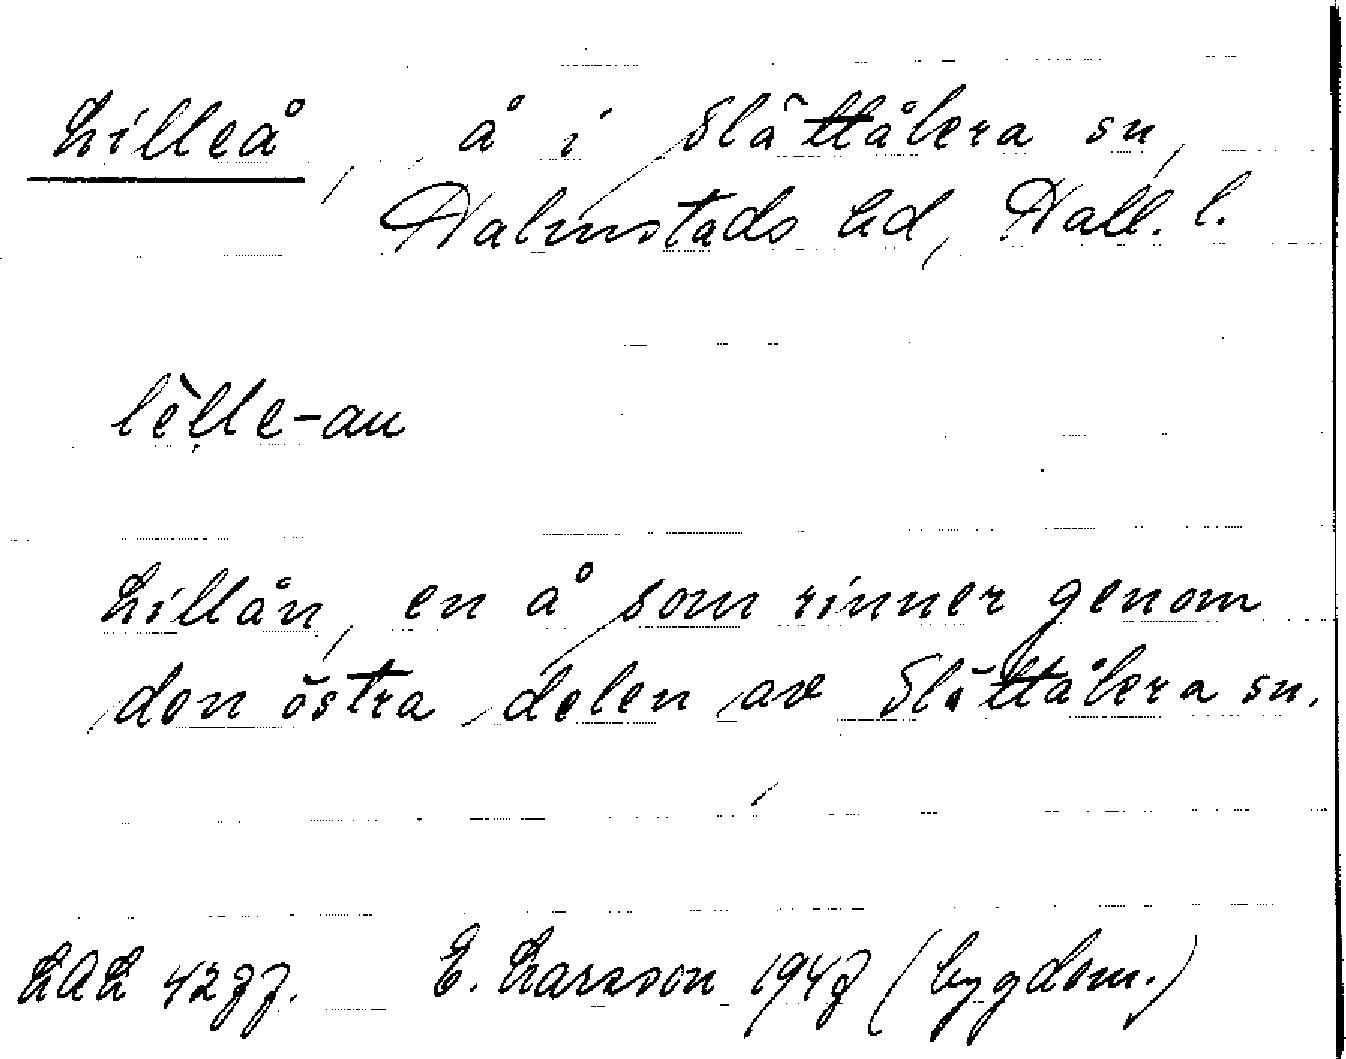 Lilleå, å i Slättåkra sn,
Halmstads hd, Hall. l.
lèlle-an
Lillån, en å som rinner genom
den östra delen av Slättåkra sn.
LAL 4277. E. Larsson 1947 (bygdem.)